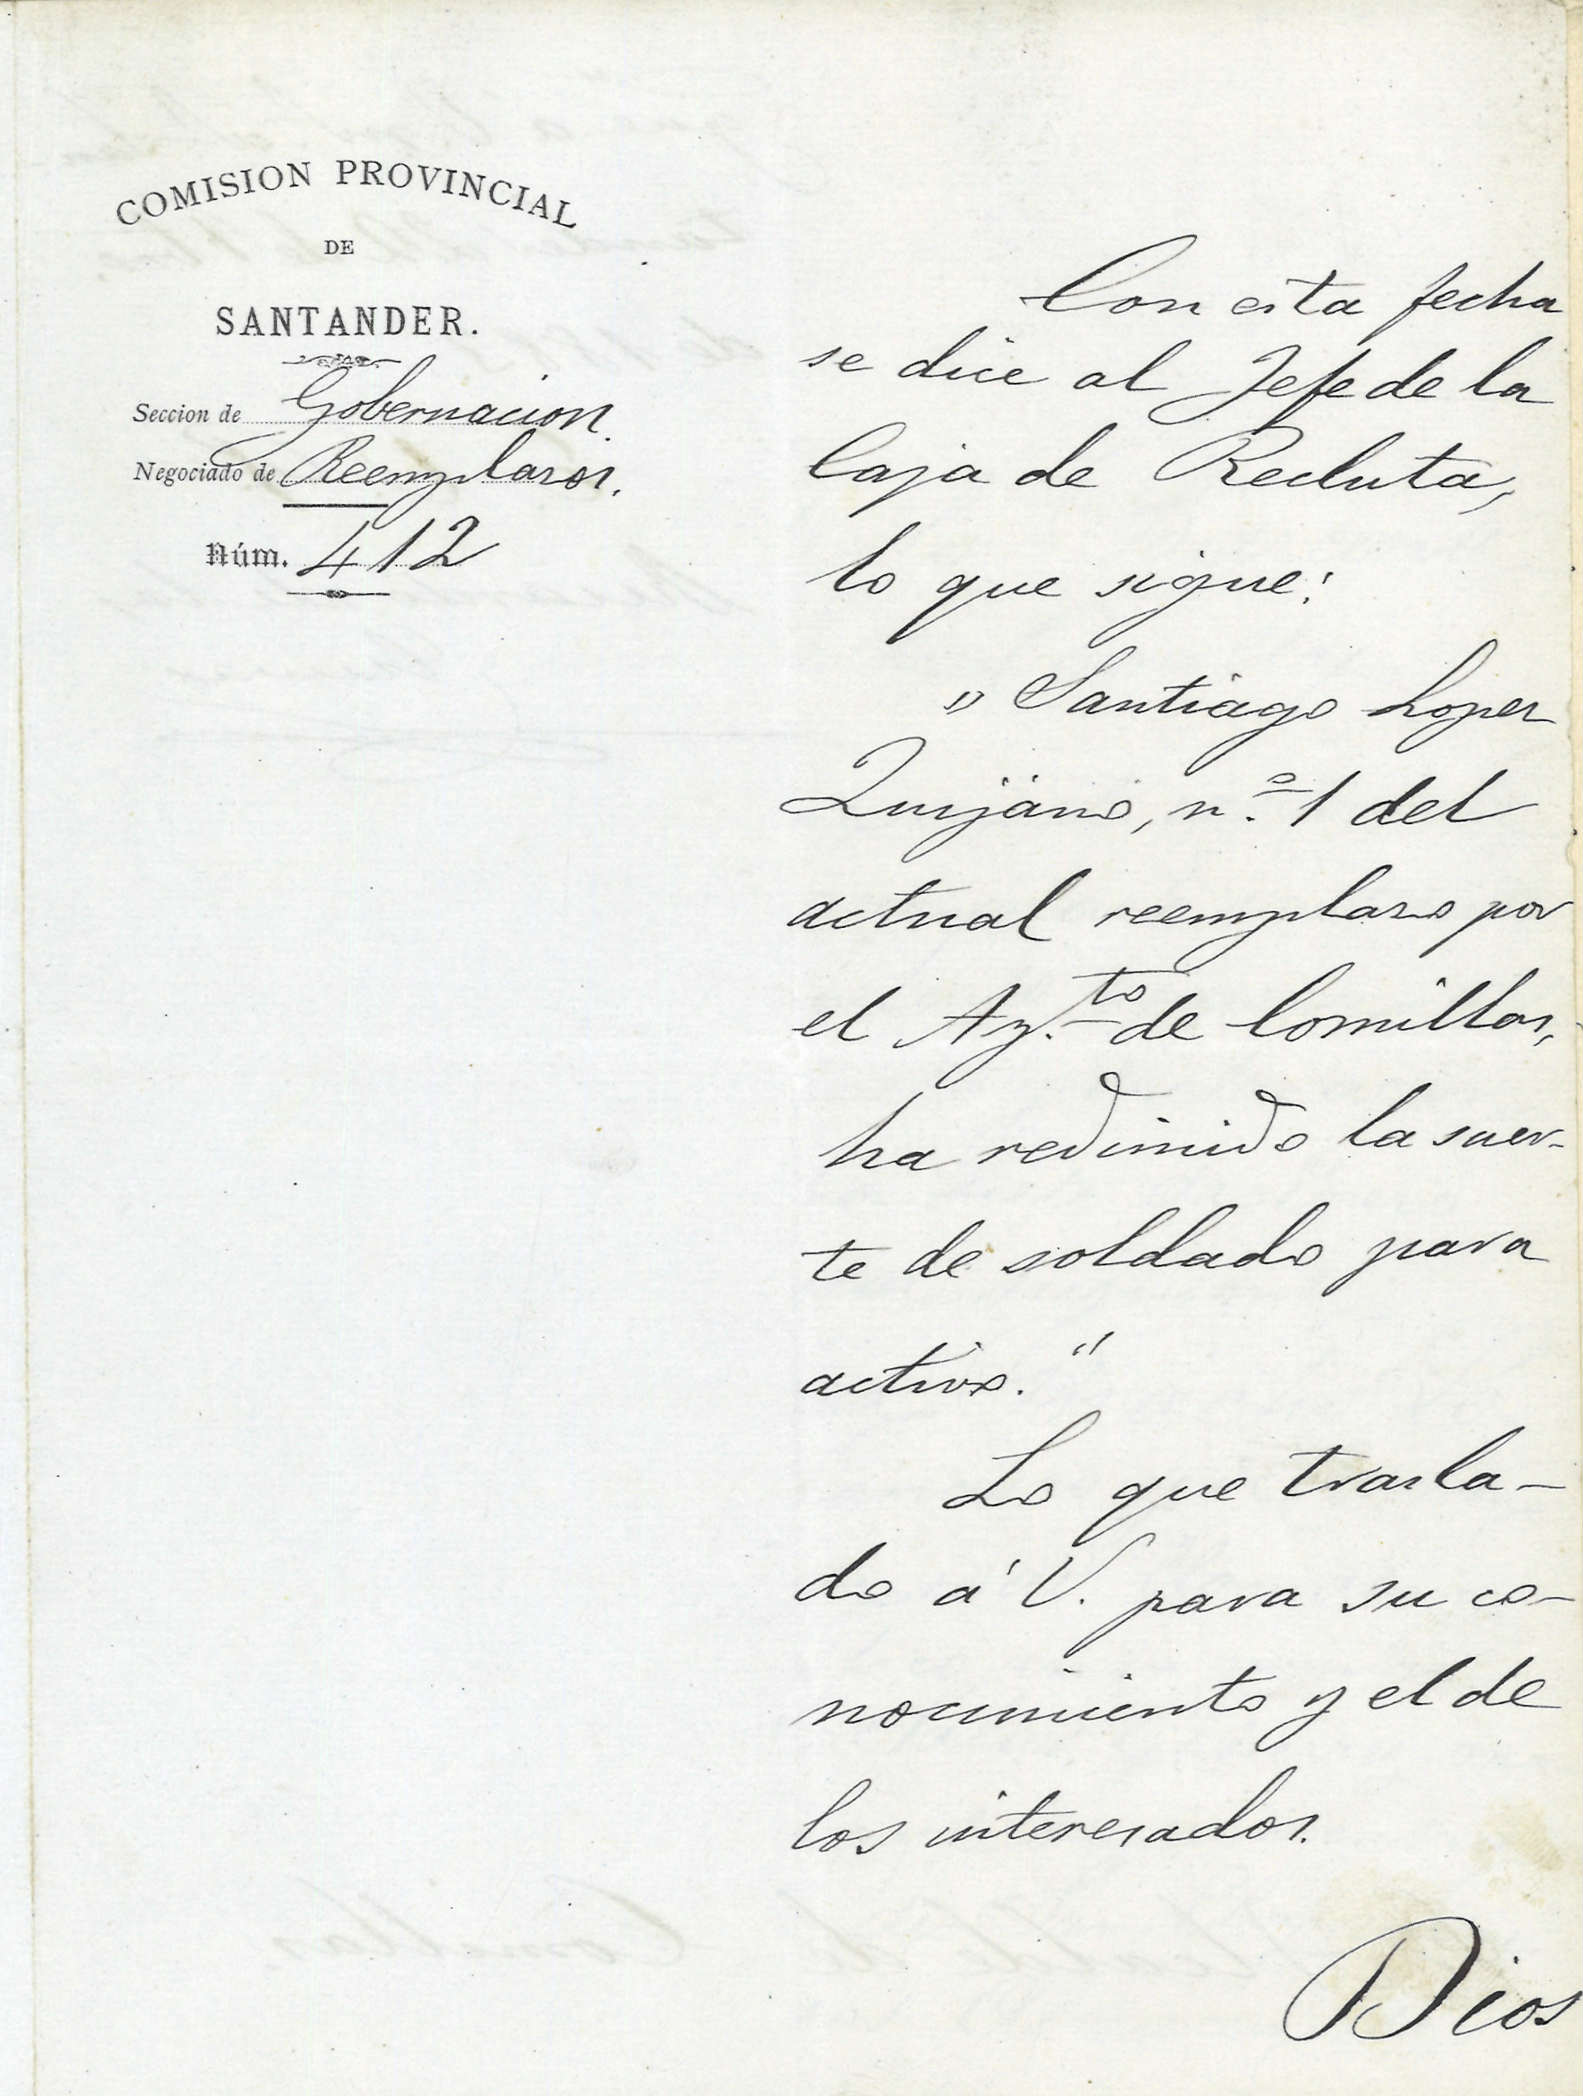 COMISION PROVINCIAL
DE
SANTANDER.
Seccion de Gobernacion.
Negociado de Reemplazos.
Núm. 412
Con esta fecha
se dice al Jefe de la
Caja de Recluta,
lo que sigue:
"Santiago Lopez
Quijano, n.º 1 del
actual reemplazo por
el Ay.to de Comillas,
ha redimido la suer-
te de soldado para
activo."
Lo que trasla-
do á V. para su co-
nocimiento y el de
los interesados.
Dios